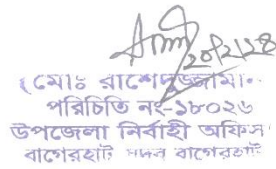 ২০/২/২৪
(মোঃ রাশেদুজ্জামান)
পরিচিতি নং-১৮০২৬
উপজেলা নির্বাহী অফিসা
বাগেরহাট সদর বাগেরহাট